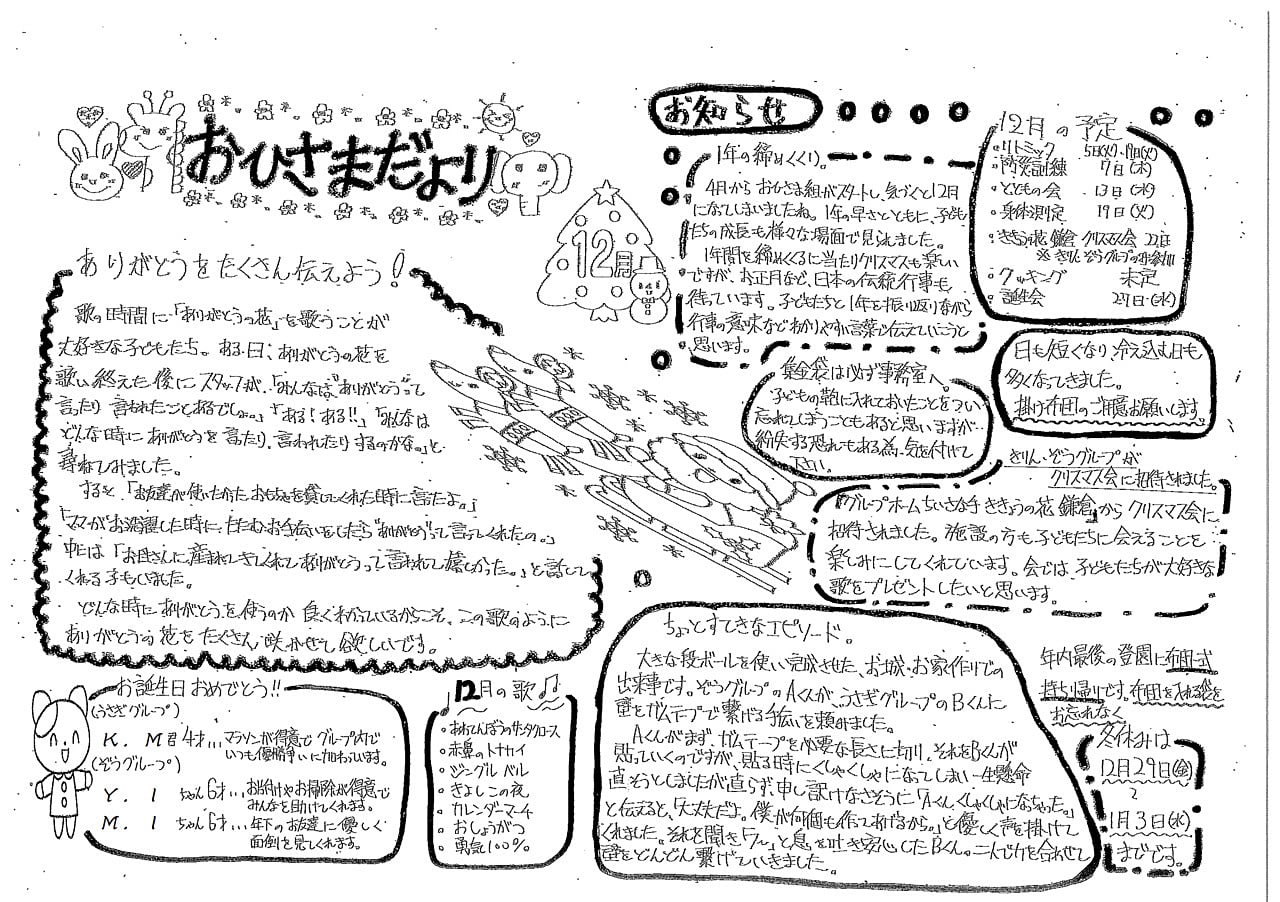 おひさまだより
12月
ありがとうをたくさん伝えよう!
歌の時間に「ありがとうの花」を歌うことが
大好きな子どもたち。ある日、ありがとうの花を
歌い終えた後にスタッフが、「みんなは"ありがとう"って
言ったり言われたことあるでしょ。」「ある!ある!!」「みんなは
どんな時にありがとうを言たり、言われたりするのかな。」と
尋ねてみました。
すると、「お友達が使いたかたおもちゃを貸してくれた時に言たよ。」
「ママがお洗濯した時に、たたむお手伝いをしたら"ありがとう"って言てくれたの。」
中には「お母さんに産まれてきてくれてありがとうって言われて嬉しかった。」と話して
くれる子もいました。
どんな時にありがとうを使うのか良くわかっているからこそ、この歌のように
ありがとうの花をたくさん咲かせて欲しいです。
お誕生日おめでとう!!
(うさぎグループ)
K. M君 4才...マラソンが得意でグループ内で
いつも優勝争いに加わっています。
(ぞうグループ)
Y. I ちゃん6才...お片付けやお掃除が得意で
みんなを助けてくれます。
M. I ちゃん6才...年下のお友達に優しく
面倒を見てくれます。
12月の歌♫
・あわてんぼうのサンタクロース
・赤鼻のトナカイ
・ジングルベル
・きよしこの夜
・カレンダーマーチ
・おしょうがつ
・勇気100%
お知らせ
1年の締めくくり。
4月からおひさま組がスタートし、気づくと12月
になってしまいましたね。1年の早さとともに、子ども
たちの成長も様々な場面で見られました。
1年間を締めくくるに当たりクリスマスも楽しい
ですが、お正月など、日本の伝統行事も
待っています。子どもたちと1年を振り返りながら
行事の意味などわかりやすい言葉で伝えていこうと
思います。
12月の予定
・リトミック 5日(火)、19日(火)
・防災訓練 7日(木)
・とどもの会 13日(水)
・身体測定 19日(火)
・ききょうの花 鎌倉 クリスマス会 22日
※きりん、ぞうグループのみ参加
・クッキング 未定
・誕生会 27日(水)
集金袋は必ず事務室へ。
子どもの鞄に入れておいたことをつい
忘れてしまうこともあると思いますが
紛失する恐れもある為、気を付けて
下さい。
日も短くなり、冷え込む日も
多くなってきました。
掛け布団のご用意お願いします。
きりん・ぞうグループが
クリスマス会に招待されました。
『グループホームちいさな手 ききょうの花 鎌倉』からクリスマス会に
招待されました。施設の方も子どもたちに会えることを
楽しみにしてくれています。会では子どもたちが大好きな
歌をプレゼントしたいと思います。
ちょっとすてきなエピソード。
大きな段ボールを使い完成させた、お城・お家作りでの
出来事です。ぞうグループのAくんが、うさぎグループのBくんに
壁をガムテープで繋げる手伝いを頼みました。
Aくんがまず、ガムテープを必要な長さに切り、それをBくんが
貼っていくのですが、貼る時にくしゃくしゃになてしまい一生懸命
直そうとしましたが直らず、申し訳けなさそうに「Aくん、くしゃくしゃになちゃった。」
と伝えると、「大丈夫だよ。僕が何個も作てあげるから。」と優しく声を掛けて
くれました。それを聞き「フ〜」と息を吐き安心したBくん。二人で力を合わせて
壁をどんどん繋げていきました。
年内最後の登園に布団一式
持ち帰りです。布団を入れる袋を
お忘れなく
冬休みは
12月29日(金)
〜
1月3日(水)
までです。